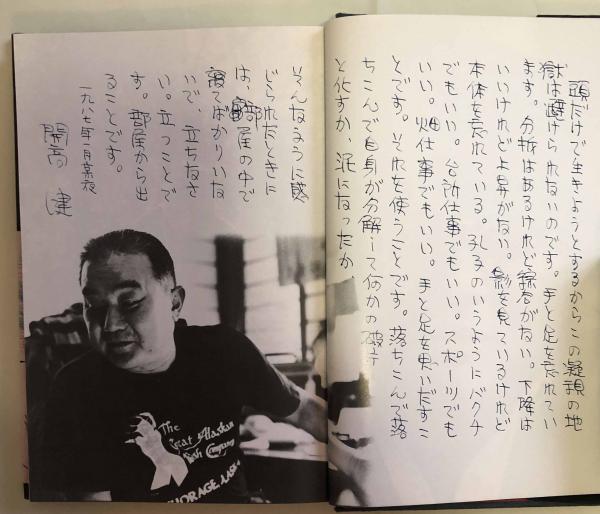 頭だけで生きようとするからこの凝視の地
獄は避けられないのです。手と足を忘れてい
ます。分析はあるけれど綜合がない。下降は
いいけれど上昇がない。影を見ているけれど
本体を忘れている。孔子のいうようにバクチ
でもいい。台所仕事でもいい。スポーツでも
いい。畑仕事でもいい。手と足を思いだすこ
とです。それを使うことです。落ちこんで落
ちこんで自身が分解して何かの破片
と化すか、泥になったか、
そんなように感
じられたときに
は、部屋の中で
寝てばかりいな
いで、立ちなさ
い。立つことで
す。部屋から出
ることです。
一九八七年一月某夜
開高 健
The
Great Alaskan
Fish Company
ANCHORAGE, ALASKA